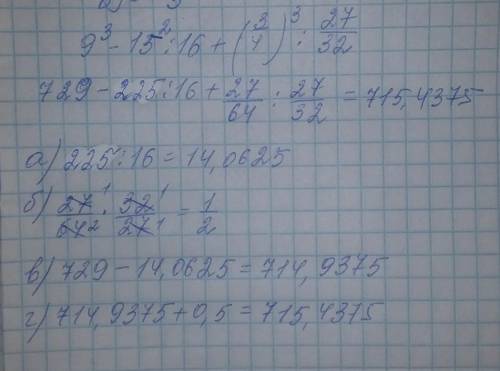 9³ - 15² : 16 + (3/4)³ : 27/32
729 - 225 : 16 + 27/64 : 27/32 = 715,4375
а) 225 : 16 = 14,0625
б) 27¹/64² · 32¹/27¹ = 1/2
в) 729 - 14,0625 = 714,9375
г) 714,9375 + 0,5 = 715,4375